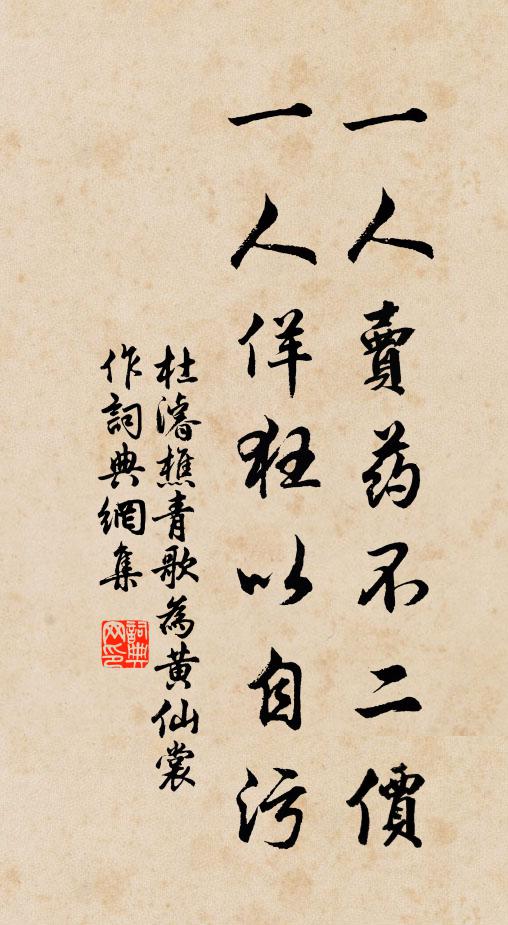 一人賣药不二價
一人佯狂以自污
杜濬樵青歌為黄仙裳
作詞典網集
詞典网印